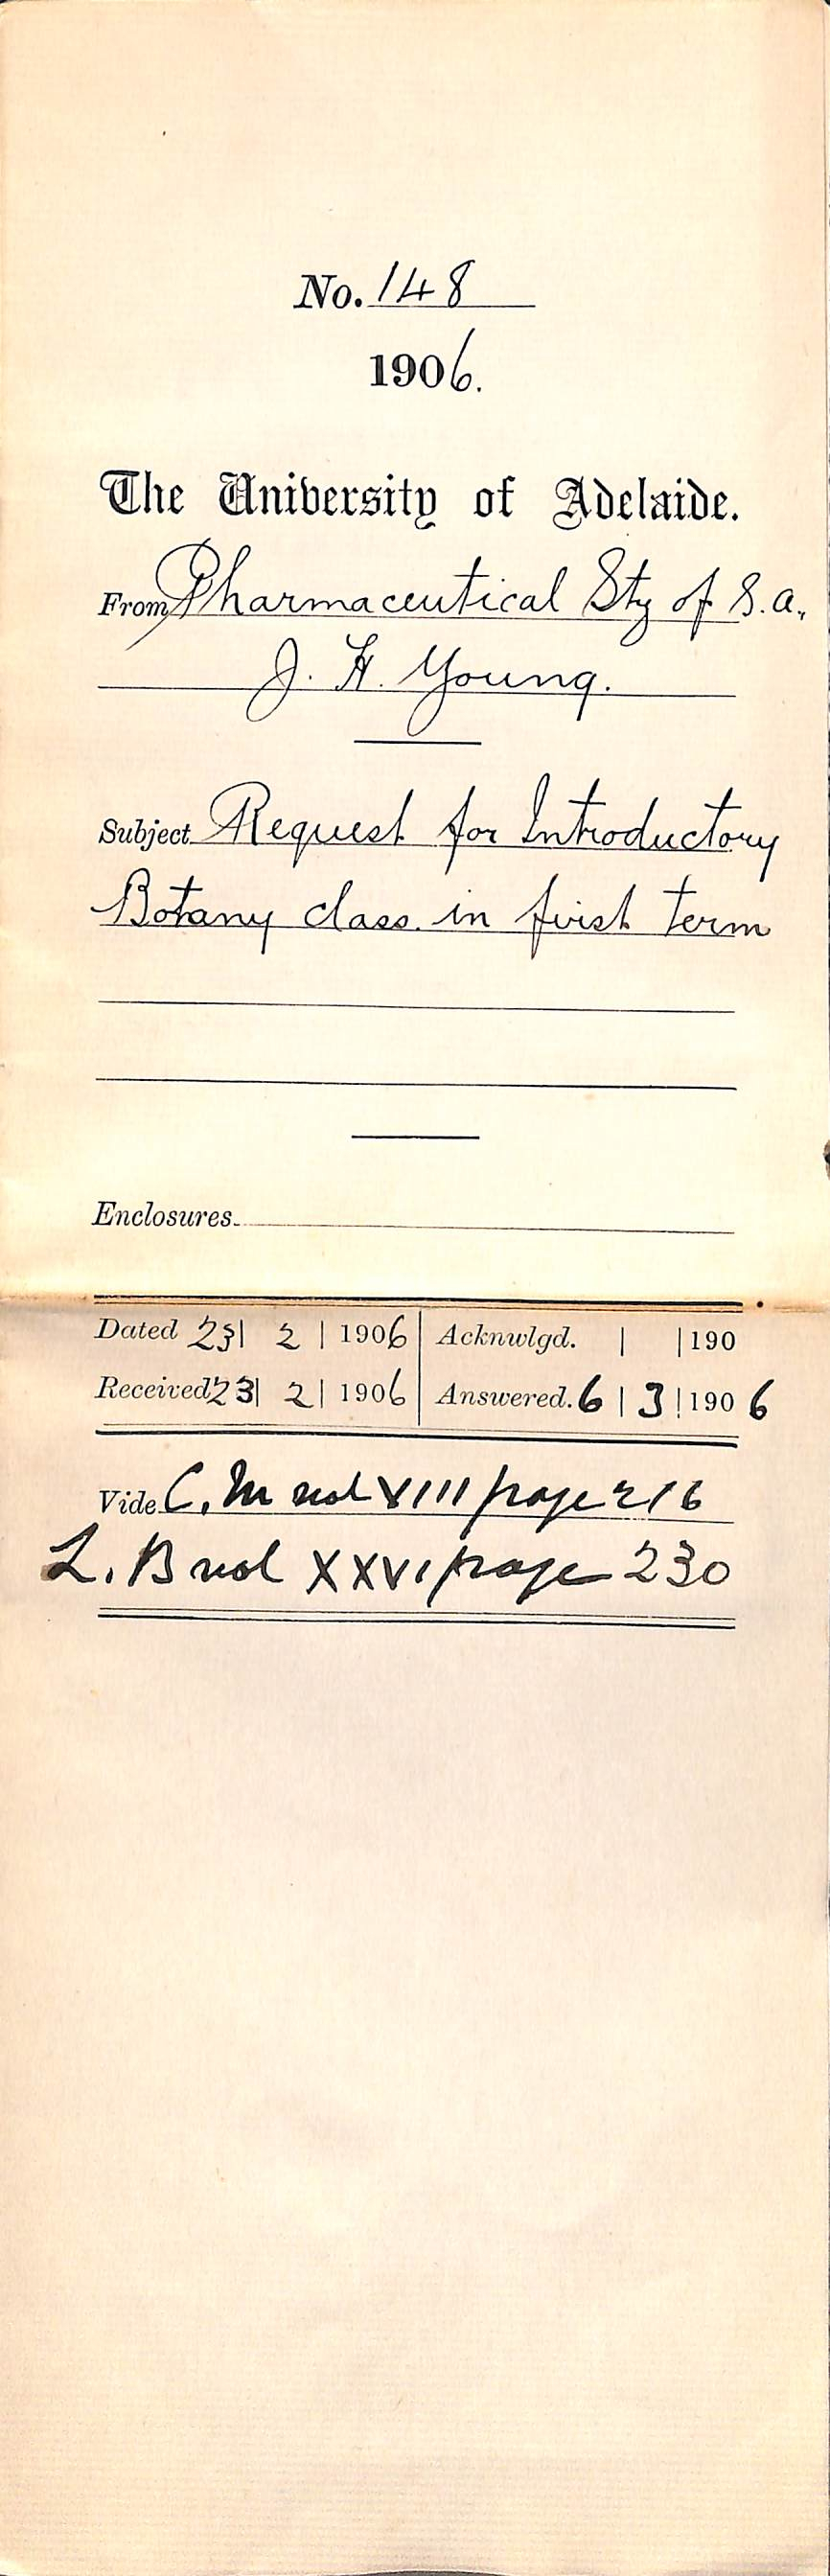 No. 148
1906.
The University of Adelaide.
From Pharmaceutical Sty of S.A.,
J. H. Young.
Subject Request for Introductory
Botany class in first term
Enclosures
Dated 23 | 2 | 1906 | Acknwlgd. | | 190
Received 23 | 2 | 1906 | Answered. 6 | 3 | 1906
Vide C. M vol VIII page 216
L. B vol XXVI page 230